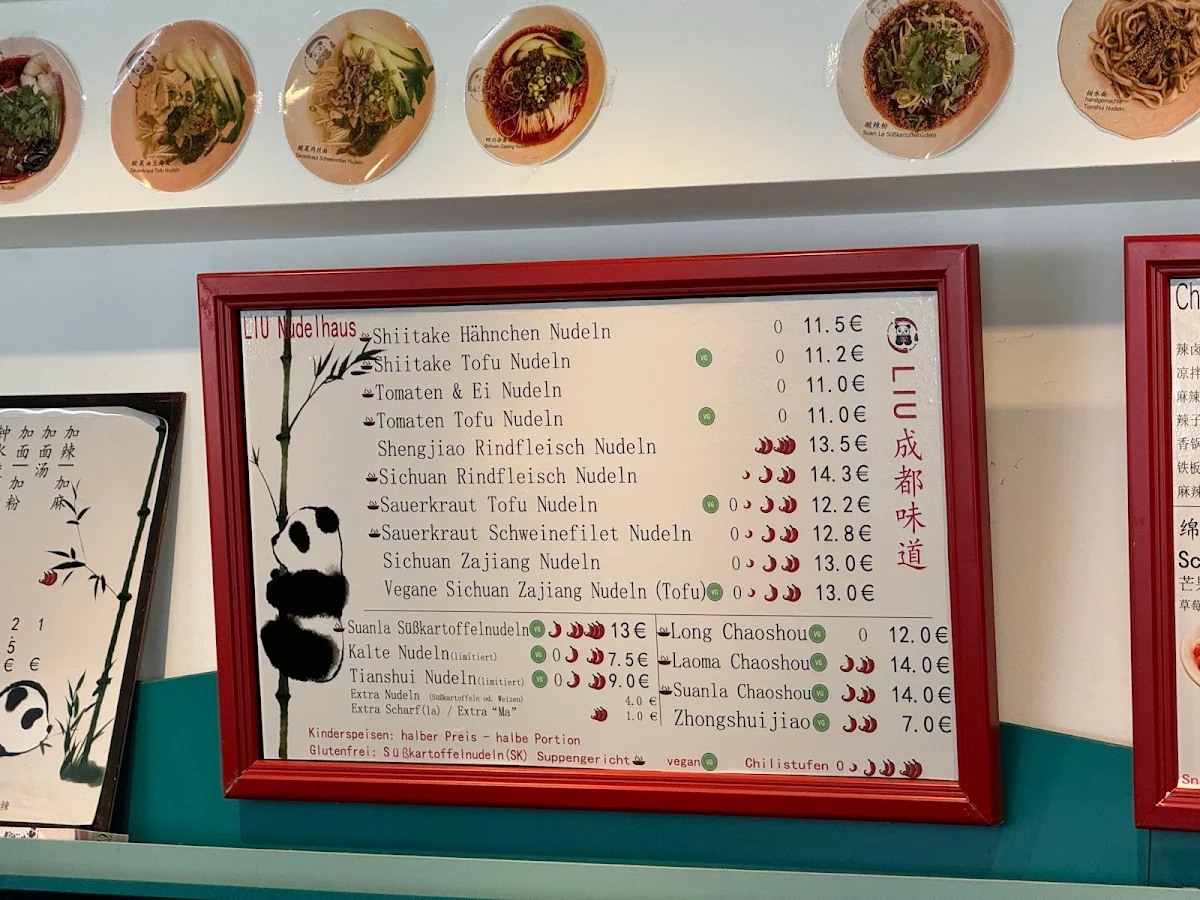 酸菜油豆腐面
Sauerkraut Tofu Nudeln
酸菜肉丝面
Sauerkraut Schweinefilet Nudeln
Sichuan Zajiang
酸辣粉
Suan La Süßkartoffelnudeln
甜水面
handgemachte
Tianshui Nudeln
LIU Nudelhaus
Shiitake Hähnchen Nudeln 0 11.5€
Shiitake Tofu Nudeln VG 0 11.2€
Tomaten & Ei Nudeln 0 11.0€
Tomaten Tofu Nudeln VG 0 11.0€
Shengjiao Rindfleisch Nudeln 13.5€
Sichuan Rindfleisch Nudeln 14.3€
Sauerkraut Tofu Nudeln VG 0 12.2€
Sauerkraut Schweinefilet Nudeln 0 12.8€
Sichuan Zajiang Nudeln 0 13.0€
Vegane Sichuan Zajiang Nudeln (Tofu) VG 0 13.0€
LIU 成都味道
Suanla Süßkartoffelnudeln VG 13€
Kalte Nudeln(limitiert) VG 0 7.5€
Tianshui Nudeln(limitiert) VG 0 9.0€
Extra Nudeln (Süßkartoffeln od. Weizen) 4.0 €
Extra Scharf(la) / Extra "Ma" 1.0 €
Long Chaoshou VG 0 12.0€
Laoma Chaoshou VG 14.0€
Suanla Chaoshou VG 14.0€
Zhongshuijiao VG 7.0€
Kinderspeisen: halber Preis - halbe Portion
Glutenfrei: Süßkartoffelnudeln(SK) Suppengericht vegan VG Chilistufen 0
加辣 加麻
1 €
加面汤
加面 加粉
2.5 €
Ch
辣卤
凉拌
麻辣
辣子
香锅
铁板
麻辣
绵
Sc
芒果
草莓
Sn